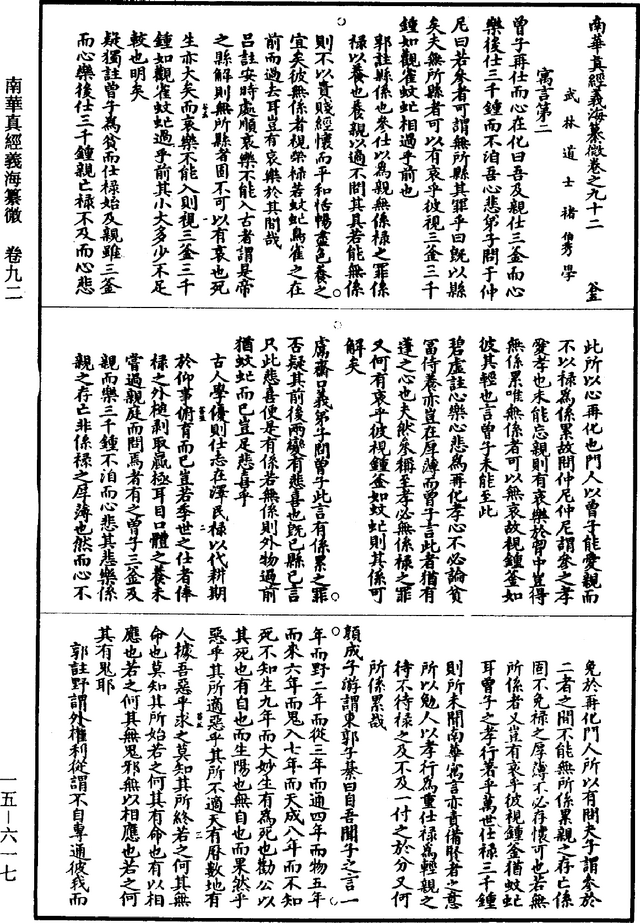 南華真經義海纂微卷之九十二 釜
武林道士褚伯秀學
寓言第二
曾子再仕而心再化曰吾及親仕三釜而心
樂後仕三千鍾而不洎吾心悲弟子問于仲
尼曰若參者可謂無所縣其罪乎曰既以縣
矣夫無所縣者可以有哀乎彼視三釜三千
鍾如觀雀蚊虻相過乎前也
郭註縣係也參仕以為親無係祿之罪係
祿以養也養親以適不問其具若能無係
則不以貴賤經懷而平和怡暢盡色養之
宜矣彼無係者視榮祿若蚊虻鳥雀之在
前而過去耳豈有哀樂於其間哉
呂註安時處順哀樂不能入古者謂是帝
之縣解則無所縣者固不可以有哀也死
生亦大矣而哀樂不能入則視三釜三千
鍾如觀雀蚊虻過乎前其小大多少不足
較也明矣
疑獨註曾子為貧而仕祿始及親雖三釜
而心樂後仕三千鍾親亡祿不及而心悲
此所以心再化也門人以曾子能愛親而
不以祿為係累故問仲尼仲尼謂參之孝
愛孝也未能忘親則有哀樂於胷中豈得
無係累唯無係者可以無哀故視鍾釜如
彼其輕也言曾子未能至此
碧虛註心樂心悲為再化孝心不必論貧
富侍養亦豈在厚薄而曾子言此者猶有
蓬之心也夫然參稱至孝必無係祿之罪
又何有哀乎彼視鍾釜如蚊虻則其係可
解矣
鬳齋口義弟子問曾子此言有係累之罪
否疑其前後兩變有悲喜也既已縣已言
只此悲喜便是有係若無係則外物過前
猶蚊虻而已豈足悲喜乎
古人學優則仕志在澤民祿以代耕期
於仰事俯育而已豈若季世之仕者俸
祿之外檤剥取贏極耳目口體之養未
嘗過親庭而問焉者有之曾子三釜及
親而樂三千鍾不洎而心悲其悲樂係
親之存亡非係祿之厚薄也然而心不
免於再化門人所以有問夫子謂參於
二者之間不能無所係累親之存亡係
固不免祿之厚薄不必存懷可也若無
所係者又豈有哀乎彼視鍾釜猶蚊虻
耳曾子之孝行著乎萬世仕祿三千鍾
則所未聞南華寓言亦責備賢者之意
所以勉人以孝行為重仕祿為輕親之
待不待祿之及不及一付之於分又何
所係累哉
顏成子游謂東郭子綦曰自吾聞子之言一
年而野二年而從三年而通四年而物五年
而來六年而鬼入七年而天成八年而不知
死不知生九年而大妙生有為死也勸公以
其死也有自也而生陽也無自也而果然乎
惡乎其所適惡乎其所不適天有曆數地有
人據吾惡乎求之莫知其所終若之何其無
命也莫知其所始若之何其有命也有以相
應也若之何其無鬼邪無以相應也若之何
其有鬼耶
郭註野謂外權利從謂不自專通彼我而
南華真經義海纂微 卷九二
一五—六一七